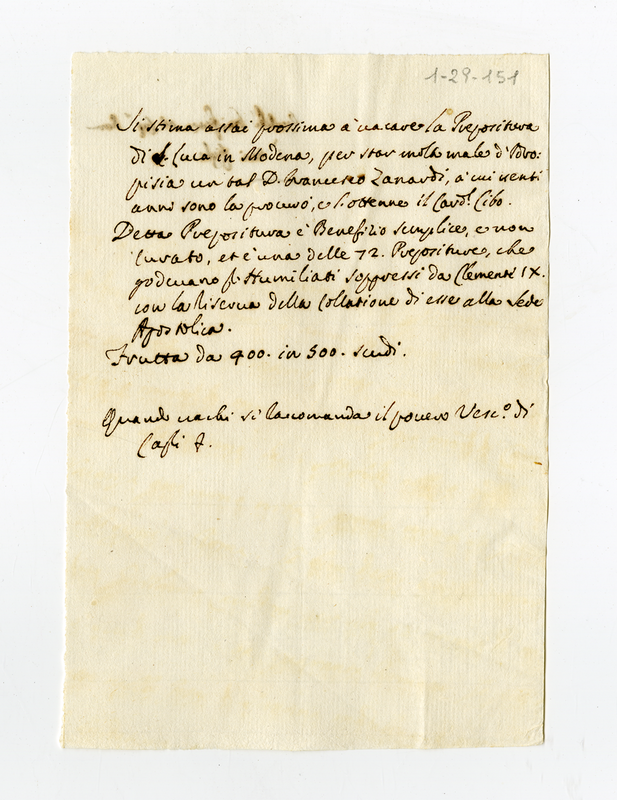 1-29-151
Si stima assai prossima à vacare la Prepositura
di S. Luca in Modena, per star molto male d'Idro:
pisia un tal D. Francesco Zanardi, à cui venti
anni sono la procurò, e l'ottenne il Card.l Cibo.
Detta Prepositura è Benefizio semplice, e non
Curato, et è una delle 72. Prepositure, che
godevano gl'Humiliati soppressi da Clemente IX.
con la Riserva della Collatione di esse alla Sede
Apostolica.
Frutta da 400. in 500. scudi.
Quando vachi si racomanda il povero Vesc.o di